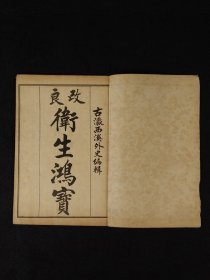 改良
衛生鴻寶
古瀛西溪外史編輯